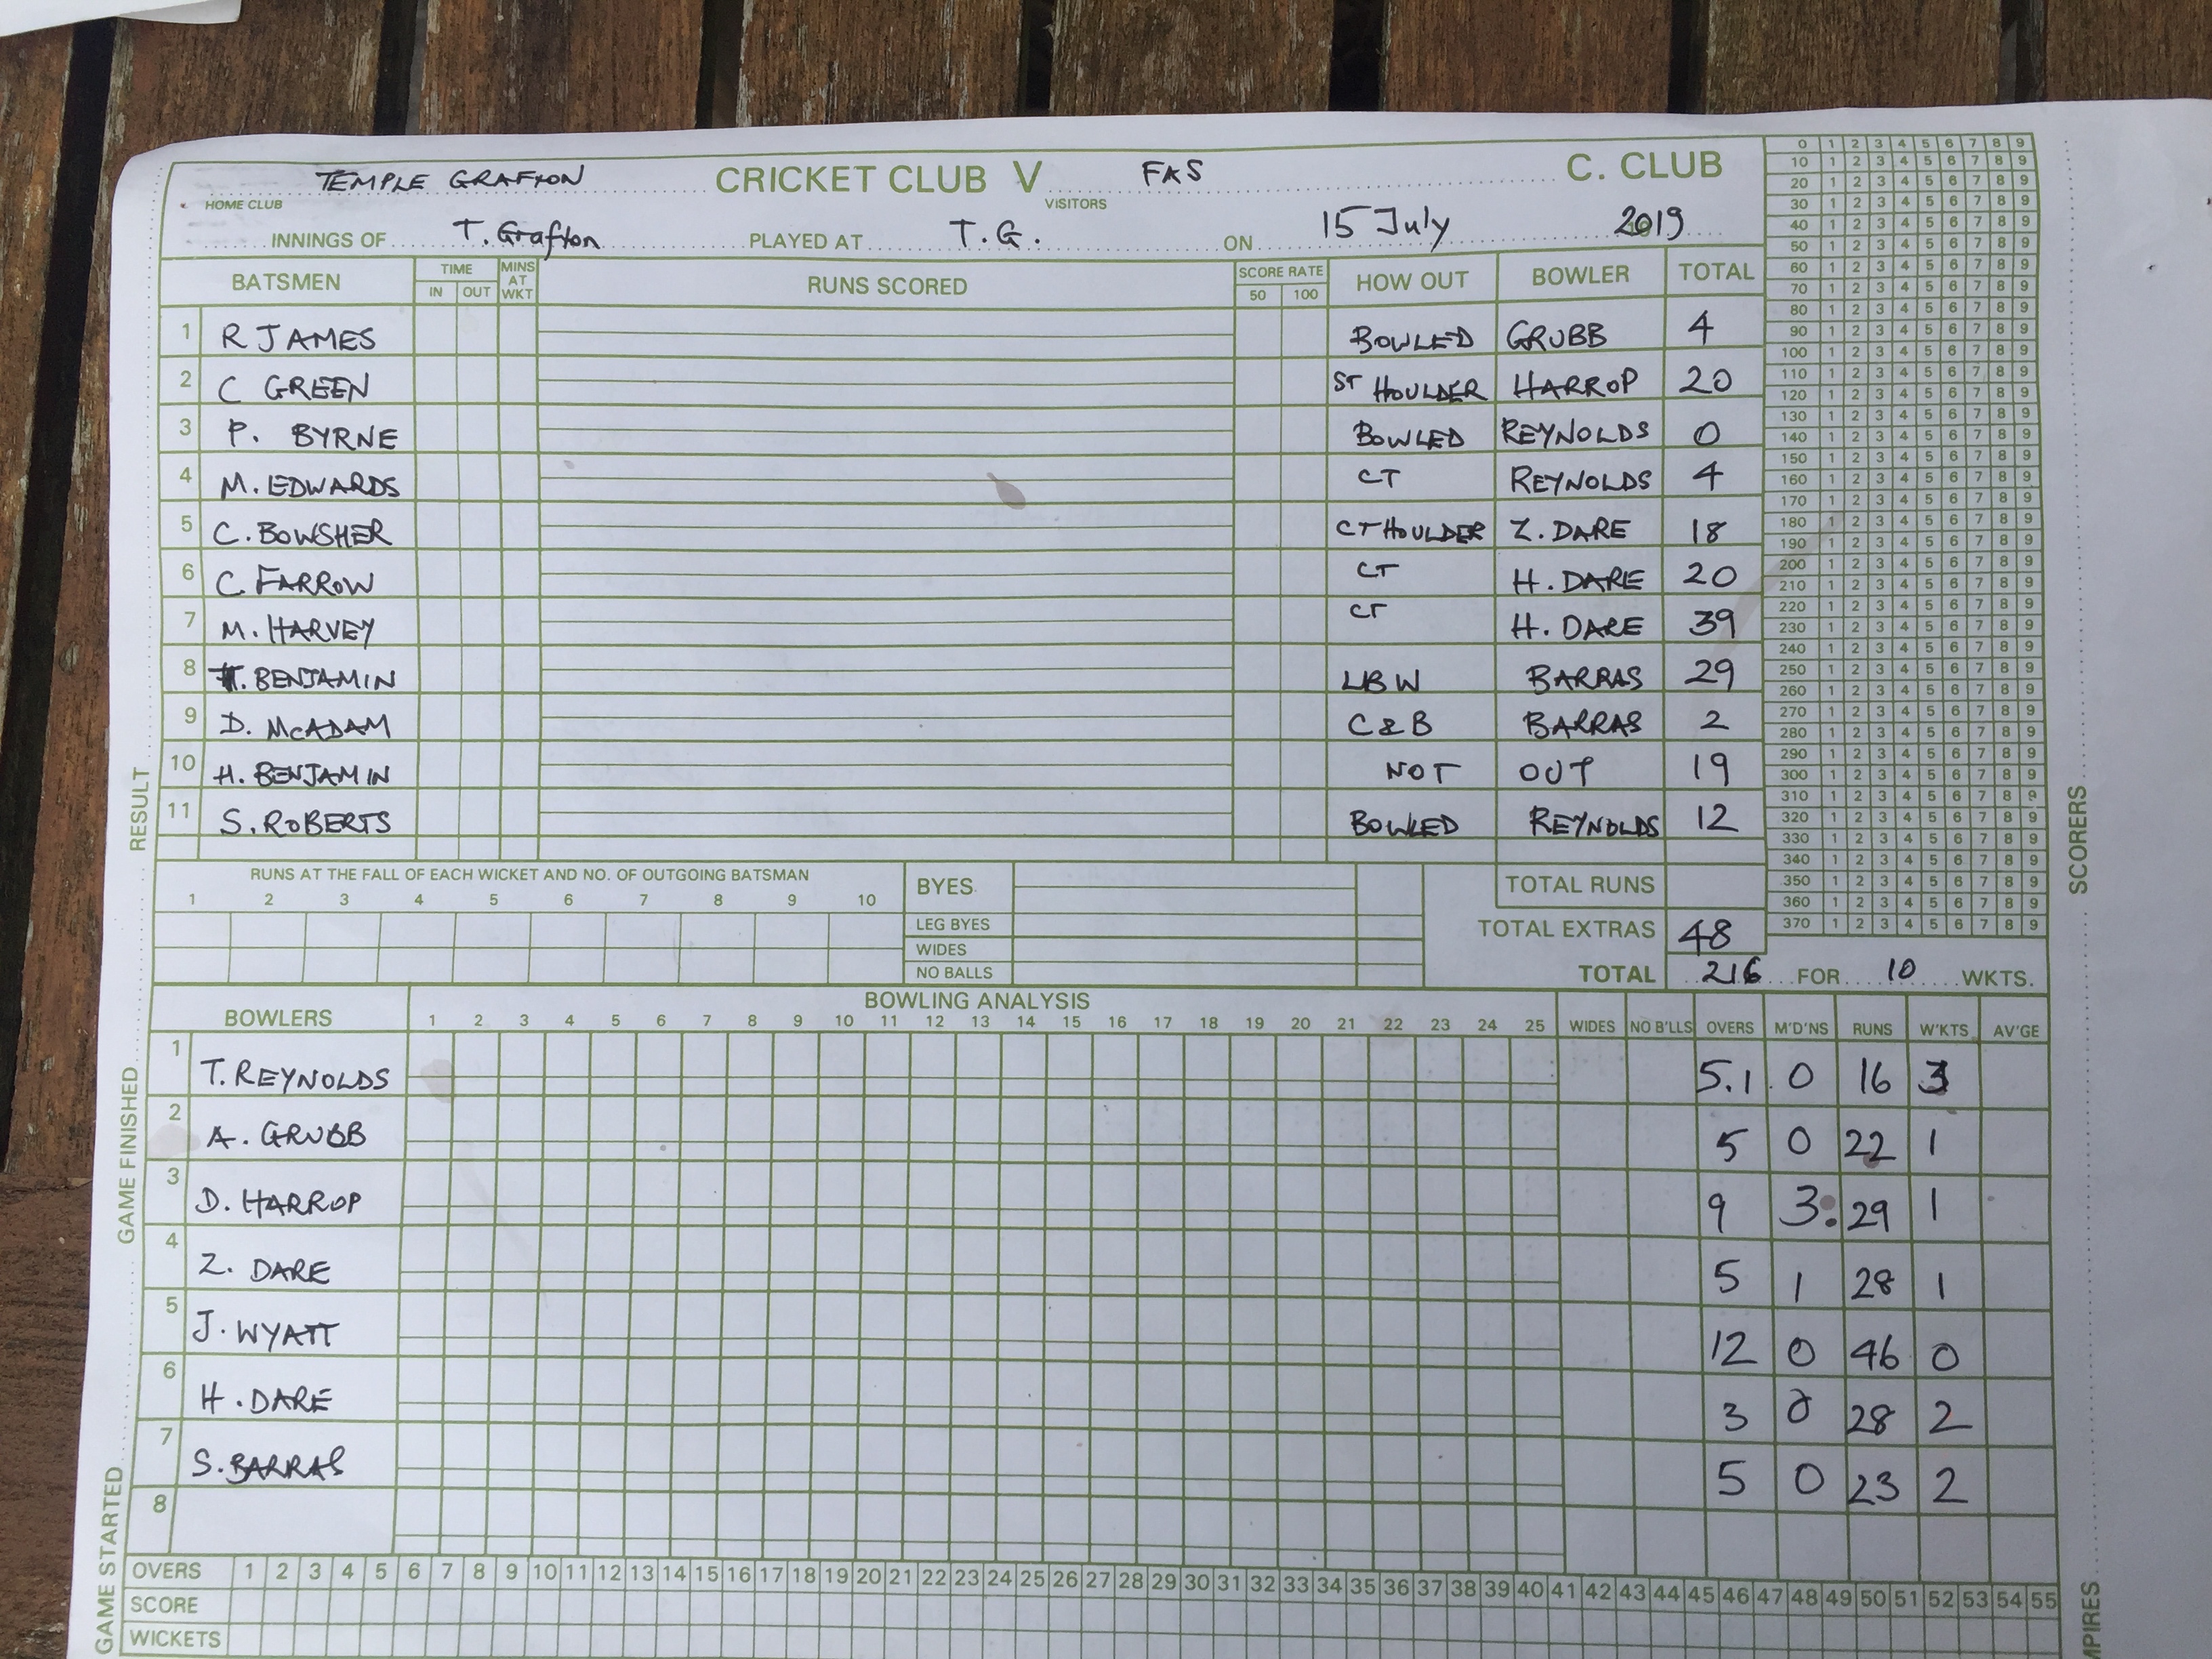 TEMPLE GRAFTON CRICKET CLUB V FAS C. CLUB
HOME CLUB VISITORS
INNINGS OF T. Grafton PLAYED AT T.G. ON 15 July 2019
BATSMEN TIME IN OUT MINS AT WKT RUNS SCORED SCORE RATE 50 100 HOW OUT BOWLER TOTAL
1 R JAMES BOWLED GRUBB 4
2 C GREEN ST HOULDER HARROP 20
3 P. BYRNE BOWLED REYNOLDS 0
4 M. EDWARDS CT REYNOLDS 4
5 C. BOWSHER CT HOULDER Z. DARE 18
6 C. FARROW CT H. DARE 20
7 M. HARVEY CT H. DARE 39
8 BENJAMIN LBW BARRAS 29
9 D. McADAM C & B BARRAS 2
10 H. BENJAMIN NOT OUT 19
11 S. ROBERTS BOWLED REYNOLDS 12
0 1 2 3 4 5 6 7 8 9
10 1 2 3 4 5 6 7 8 9
20 1 2 3 4 5 6 7 8 9
30 1 2 3 4 5 6 7 8 9
40 1 2 3 4 5 6 7 8 9
50 1 2 3 4 5 6 7 8 9
60 1 2 3 4 5 6 7 8 9
70 1 2 3 4 5 6 7 8 9
80 1 2 3 4 5 6 7 8 9
90 1 2 3 4 5 6 7 8 9
100 1 2 3 4 5 6 7 8 9
110 1 2 3 4 5 6 7 8 9
120 1 2 3 4 5 6 7 8 9
130 1 2 3 4 5 6 7 8 9
140 1 2 3 4 5 6 7 8 9
150 1 2 3 4 5 6 7 8 9
160 1 2 3 4 5 6 7 8 9
170 1 2 3 4 5 6 7 8 9
180 1 2 3 4 5 6 7 8 9
190 1 2 3 4 5 6 7 8 9
200 1 2 3 4 5 6 7 8 9
210 1 2 3 4 5 6 7 8 9
220 1 2 3 4 5 6 7 8 9
230 1 2 3 4 5 6 7 8 9
240 1 2 3 4 5 6 7 8 9
250 1 2 3 4 5 6 7 8 9
260 1 2 3 4 5 6 7 8 9
270 1 2 3 4 5 6 7 8 9
280 1 2 3 4 5 6 7 8 9
290 1 2 3 4 5 6 7 8 9
300 1 2 3 4 5 6 7 8 9
310 1 2 3 4 5 6 7 8 9
320 1 2 3 4 5 6 7 8 9
330 1 2 3 4 5 6 7 8 9
340 1 2 3 4 5 6 7 8 9
350 1 2 3 4 5 6 7 8 9
360 1 2 3 4 5 6 7 8 9
370 1 2 3 4 5 6 7 8 9
RUNS AT THE FALL OF EACH WICKET AND NO. OF OUTGOING BATSMAN
1 2 3 4 5 6 7 8 9 10
BYES TOTAL RUNS
LEG BYES TOTAL EXTRAS 48
WIDES
NO BALLS TOTAL 216 FOR 10 WKTS.
BOWLING ANALYSIS
BOWLERS 1 2 3 4 5 6 7 8 9 10 11 12 13 14 15 16 17 18 19 20 21 22 23 24 25 WIDES NO B'LLS OVERS M'D'NS RUNS W'KTS AV'GE
1 T. REYNOLDS 5.1 0 16 3
2 A. GRUBB 5 0 22 1
3 D. HARROP 9 3 29 1
4 Z. DARE 5 1 28 1
5 J. WYATT 12 0 46 0
6 H. DARE 3 0 28 2
7 S. BARRAS 5 0 23 2
8
OVERS 1 2 3 4 5 6 7 8 9 10 11 12 13 14 15 16 17 18 19 20 21 22 23 24 25 26 27 28 29 30 31 32 33 34 35 36 37 38 39 40 41 42 43 44 45 46 47 48 49 50 51 52 53 54 55
SCORE
WICKETS
RESULT
GAME FINISHED
GAME STARTED
SCORERS
MPIRES